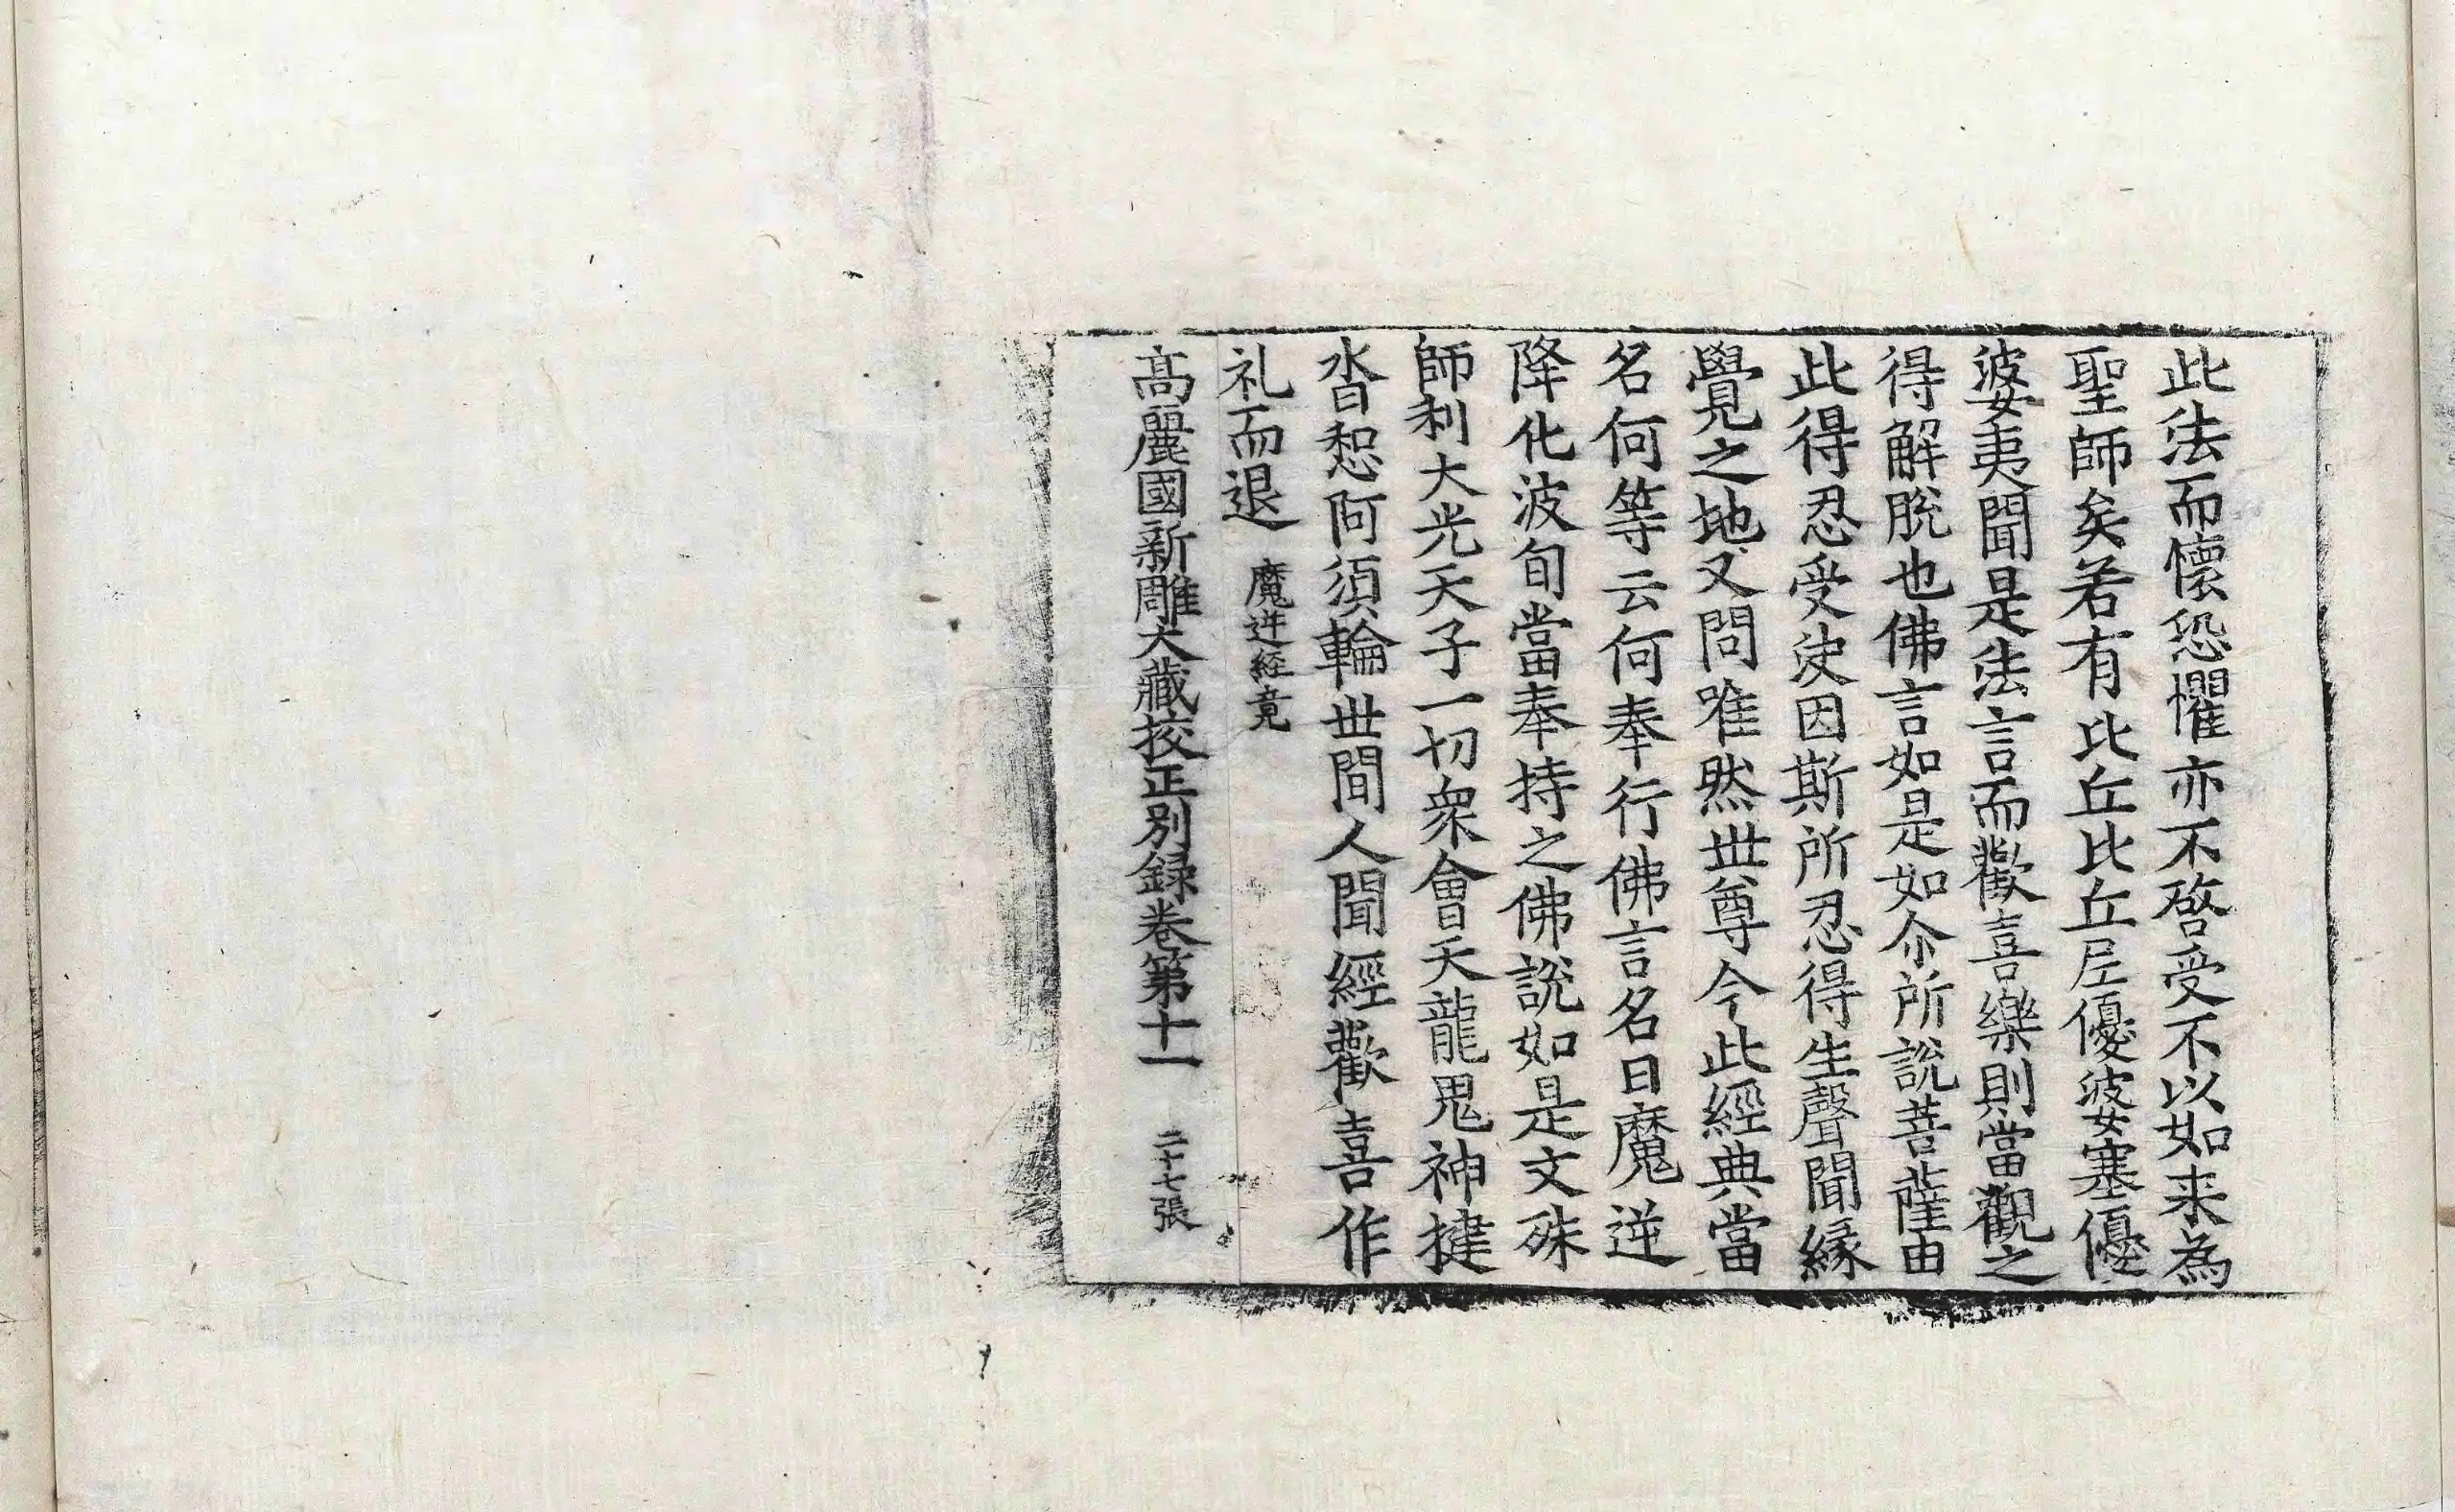 此法而懷恐懼亦不啓受不以如来為
聖師矣若有比丘比丘尼優婆塞優
婆夷聞是法言而歡喜樂則當觀之
得解脫也佛言如是如尒所說菩薩由
此得忍受决因斯所忍得生聲聞緣
覺之地又問唯然世尊今此經典當
名何等云何奉行佛言名曰魔逆
降化波旬當奉持之佛說如是文殊
師利大光天子一切衆會天龍鬼神揵
沓惒阿須輪世間人聞經歡喜作
礼而退 魔逆经竟
高麗國新雕大藏挍正別録卷第十一 二十七張